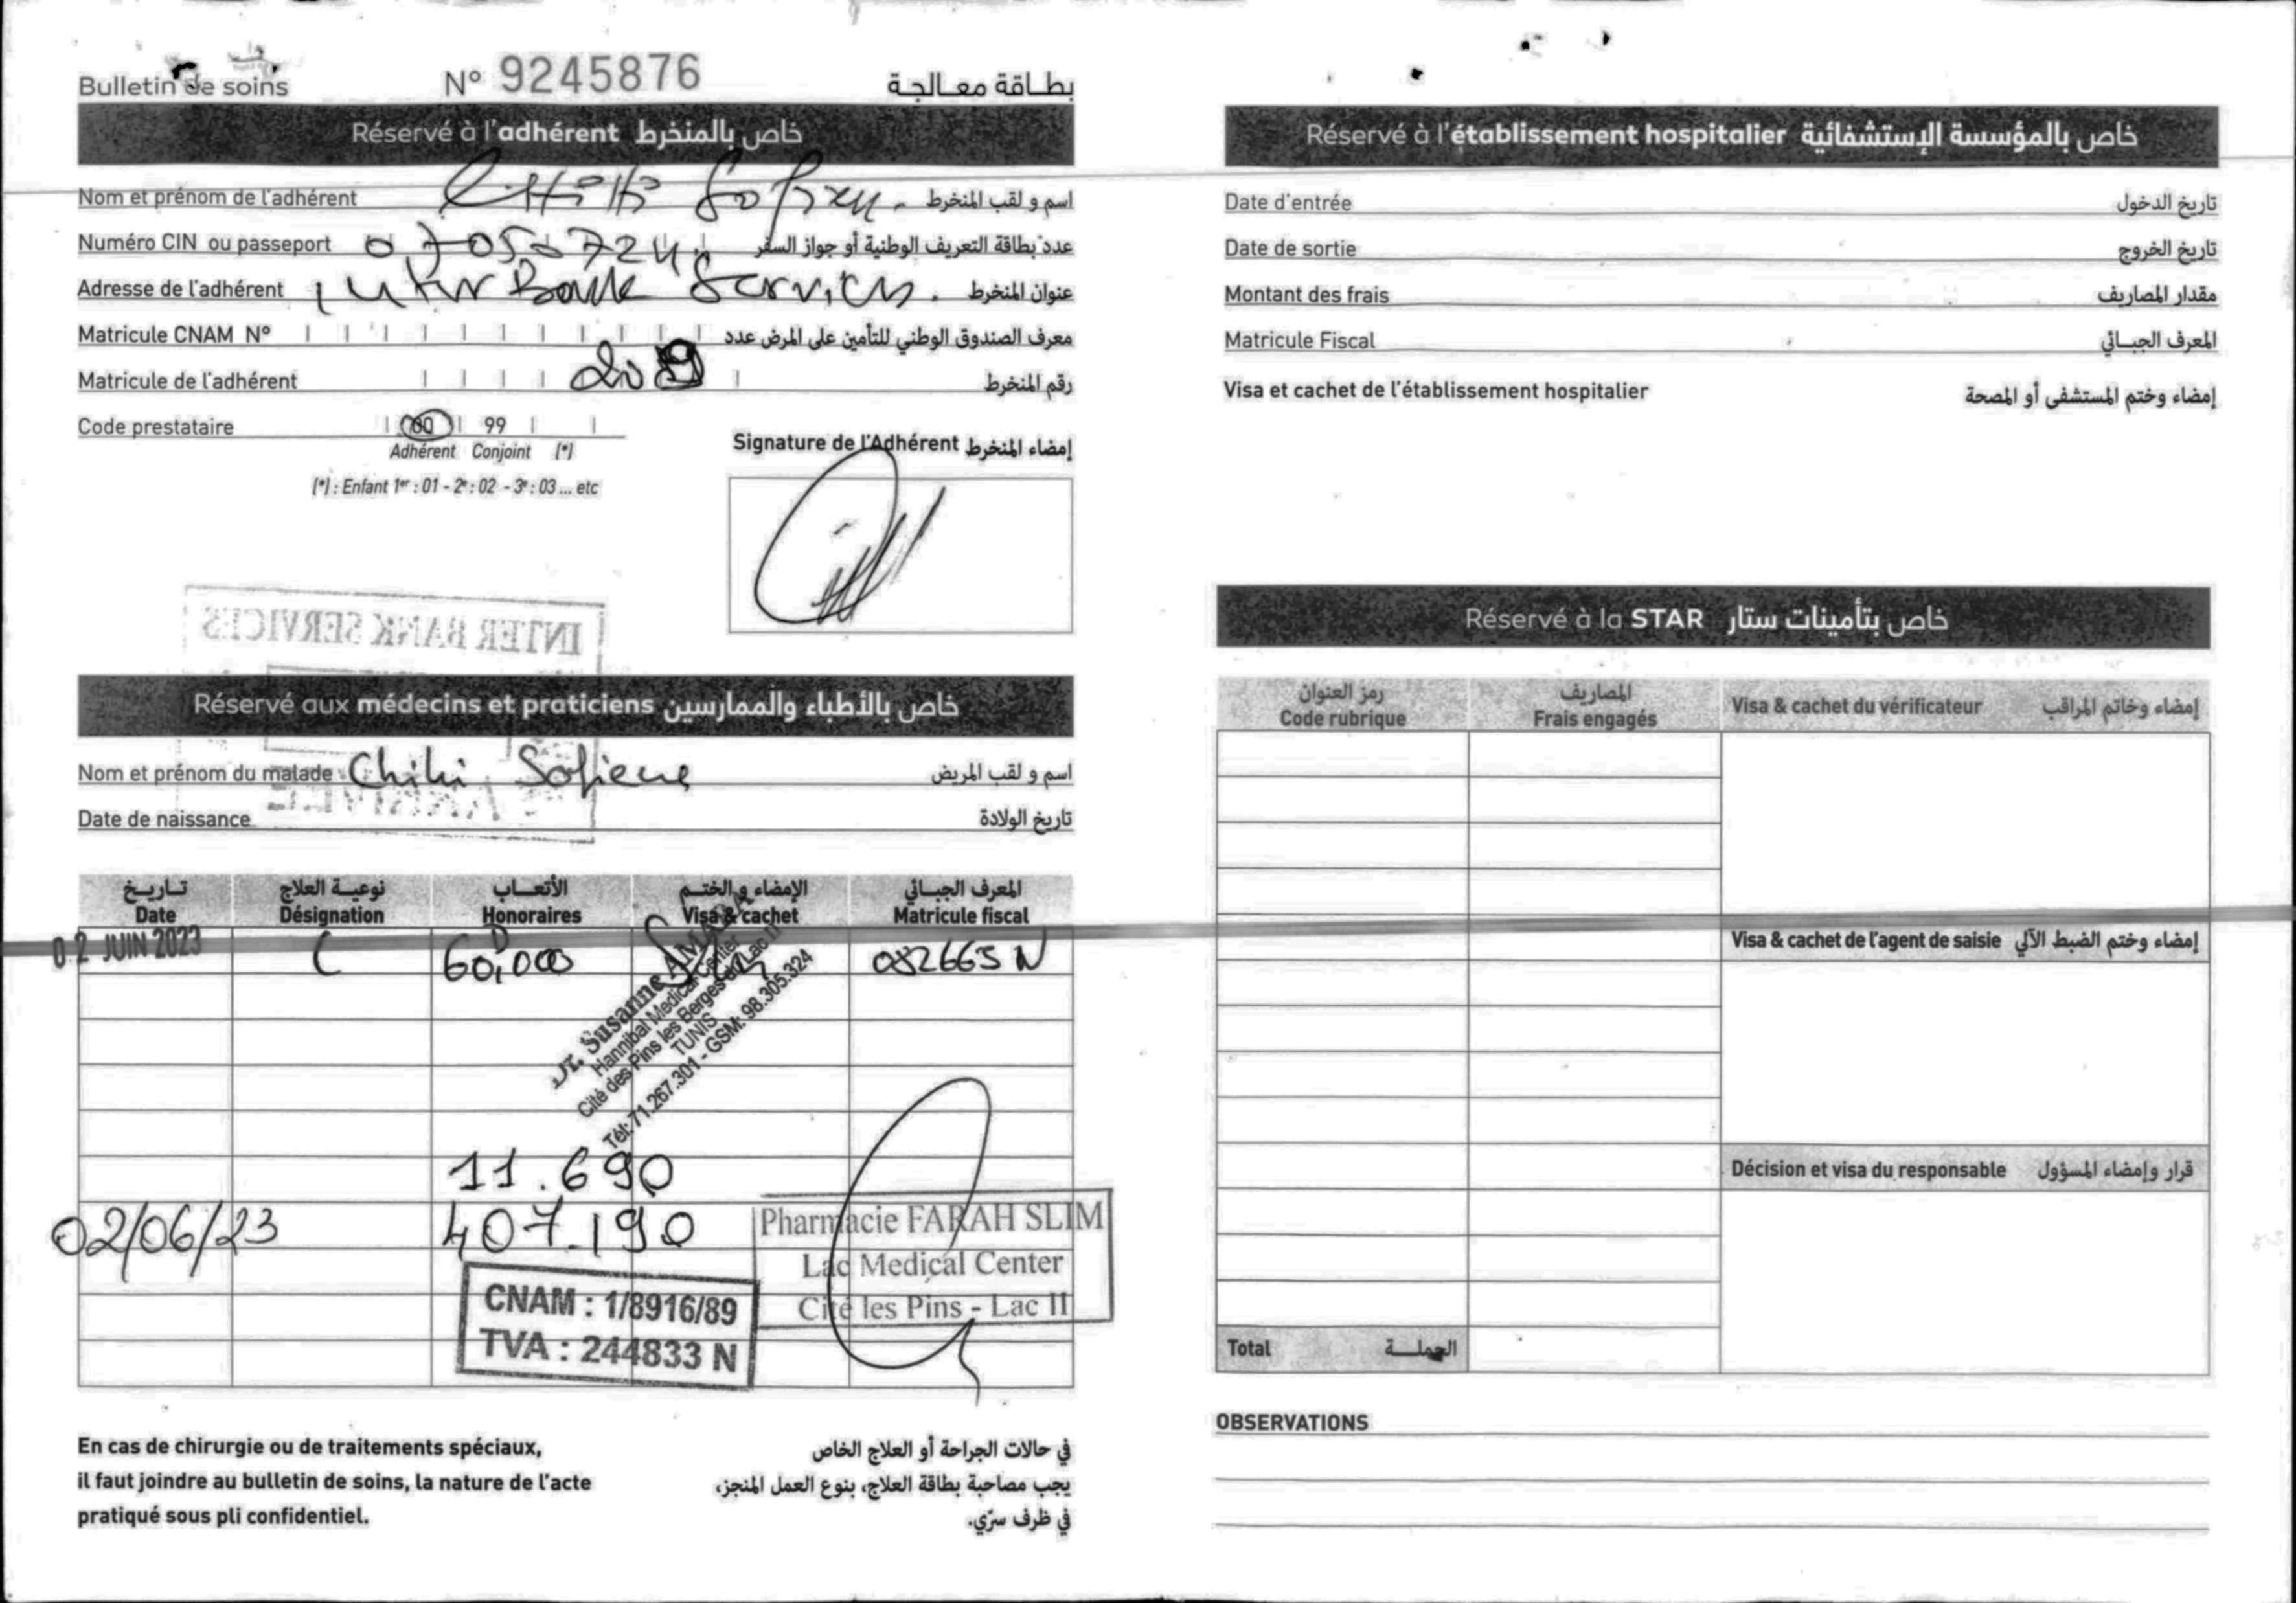 Bulletin de soins N° 9245876 بطاقة معالجة
Réservé à l'adhérent خاص بالمنخرط
Nom et prénom de l'adhérent اسم و لقب المنخرط
Numéro CIN ou passeport عدد بطاقة التعريف الوطنية أو جواز السفر
Adresse de l'adhérent Inter Bank Services. عنوان المنخرط
Matricule CNAM N° معرف الصندوق الوطني للتأمين على المرض عدد
Matricule de l'adhérent رقم المنخرط
Code prestataire 00 99
Adhérent Conjoint (*)
(*) : Enfant 1er : 01 - 2e : 02 - 3e : 03 ... etc
Signature de l'Adhérent إمضاء المنخرط
INTER BANK SERVICES
Réservé aux médecins et praticiens خاص بالأطباء والممارسين
Nom et prénom du malade Chihi Sofiene اسم و لقب المريض
Date de naissance تاريخ الولادة
تاريخ نوعية العلاج الأتعاب الإمضاء والختم المعرف الجبائي
Date Désignation Honoraires Visa & cachet Matricule fiscal
02 JUIN 2023 C 60,000 D 082665 N
Dr. Susanne AMARA
Hannibal Medical Center
Cité des Pins les Berges du Lac II
TUNIS
Tél: 71.267.301 - GSM: 98.305.324
11.690
02/06/23 407.190
Pharmacie FARAH SLIM
Lac Medical Center
Cité les Pins - Lac II
CNAM : 1/8916/89
TVA : 244833 N
En cas de chirurgie ou de traitements spéciaux,
il faut joindre au bulletin de soins, la nature de l'acte
pratiqué sous pli confidentiel.
في حالات الجراحة أو العلاج الخاص
يجب مصاحبة بطاقة العلاج، بنوع العمل المنجز،
في ظرف سرّي.
Réservé à l'établissement hospitalier خاص بالمؤسسة الإستشفائية
Date d'entrée تاريخ الدخول
Date de sortie تاريخ الخروج
Montant des frais مقدار المصاريف
Matricule Fiscal المعرف الجبائي
Visa et cachet de l'établissement hospitalier إمضاء وختم المستشفى أو المصحة
Réservé à la STAR خاص بتأمينات ستار
رمز العنوان المصاريف
Code rubrique Frais engagés Visa & cachet du vérificateur إمضاء وخاتم المراقب
Visa & cachet de l'agent de saisie إمضاء وختم الضبط الآلي
Décision et visa du responsable قرار وإمضاء المسؤول
Total الجملة
OBSERVATIONS